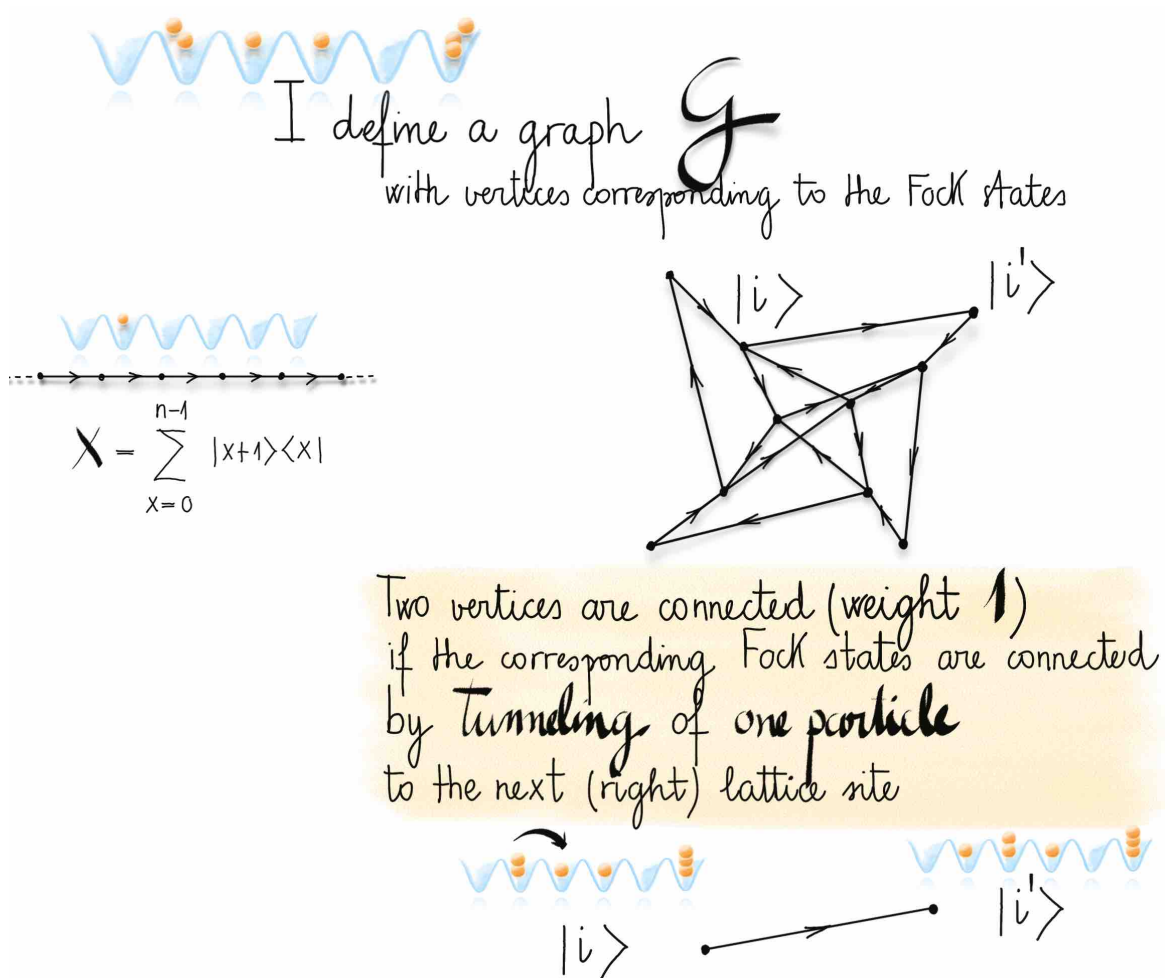 I define a graph G
with vertices corresponding to the Fock states
|i⟩
|i'⟩
n-1
X = ∑ |x+1⟩⟨x|
x=0
Two vertices are connected (weight 1)
if the corresponding Fock states are connected
by Tunneling of one particle
to the next (right) lattice site
|i⟩
|i'⟩